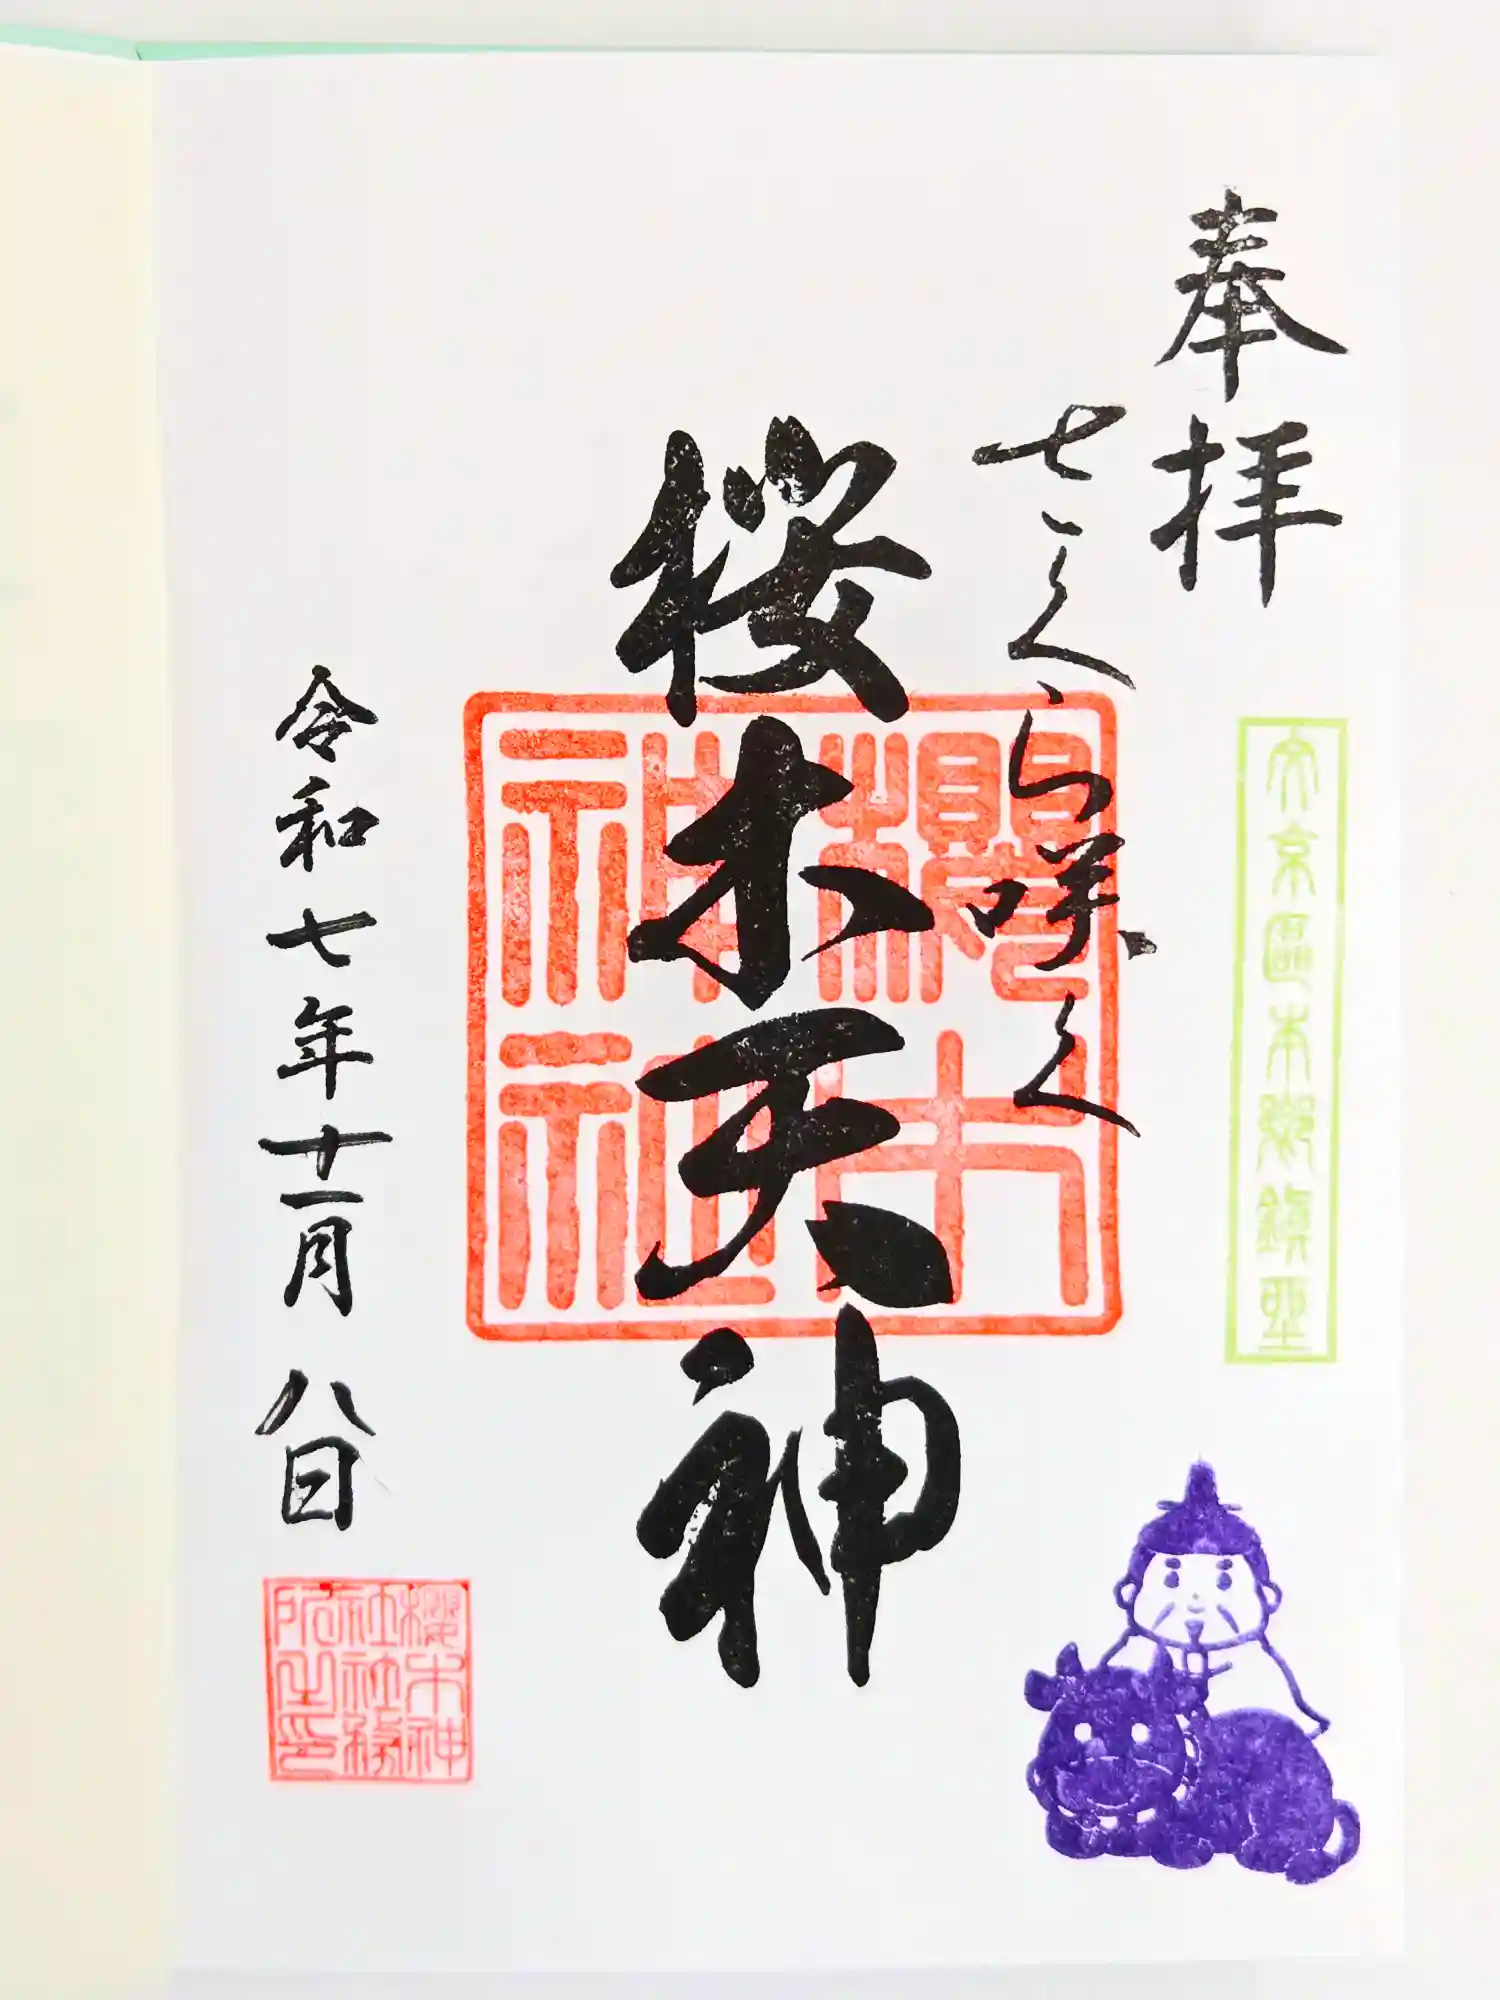 奉拝
文京區本鄕鎮坐
さくら咲く
桜木天神
櫻木
神社
令和七年十一月八日
櫻木神
社社務
所之印